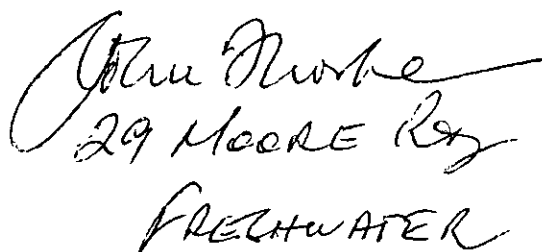 John
29 MOORE Rd
FRESHWATER